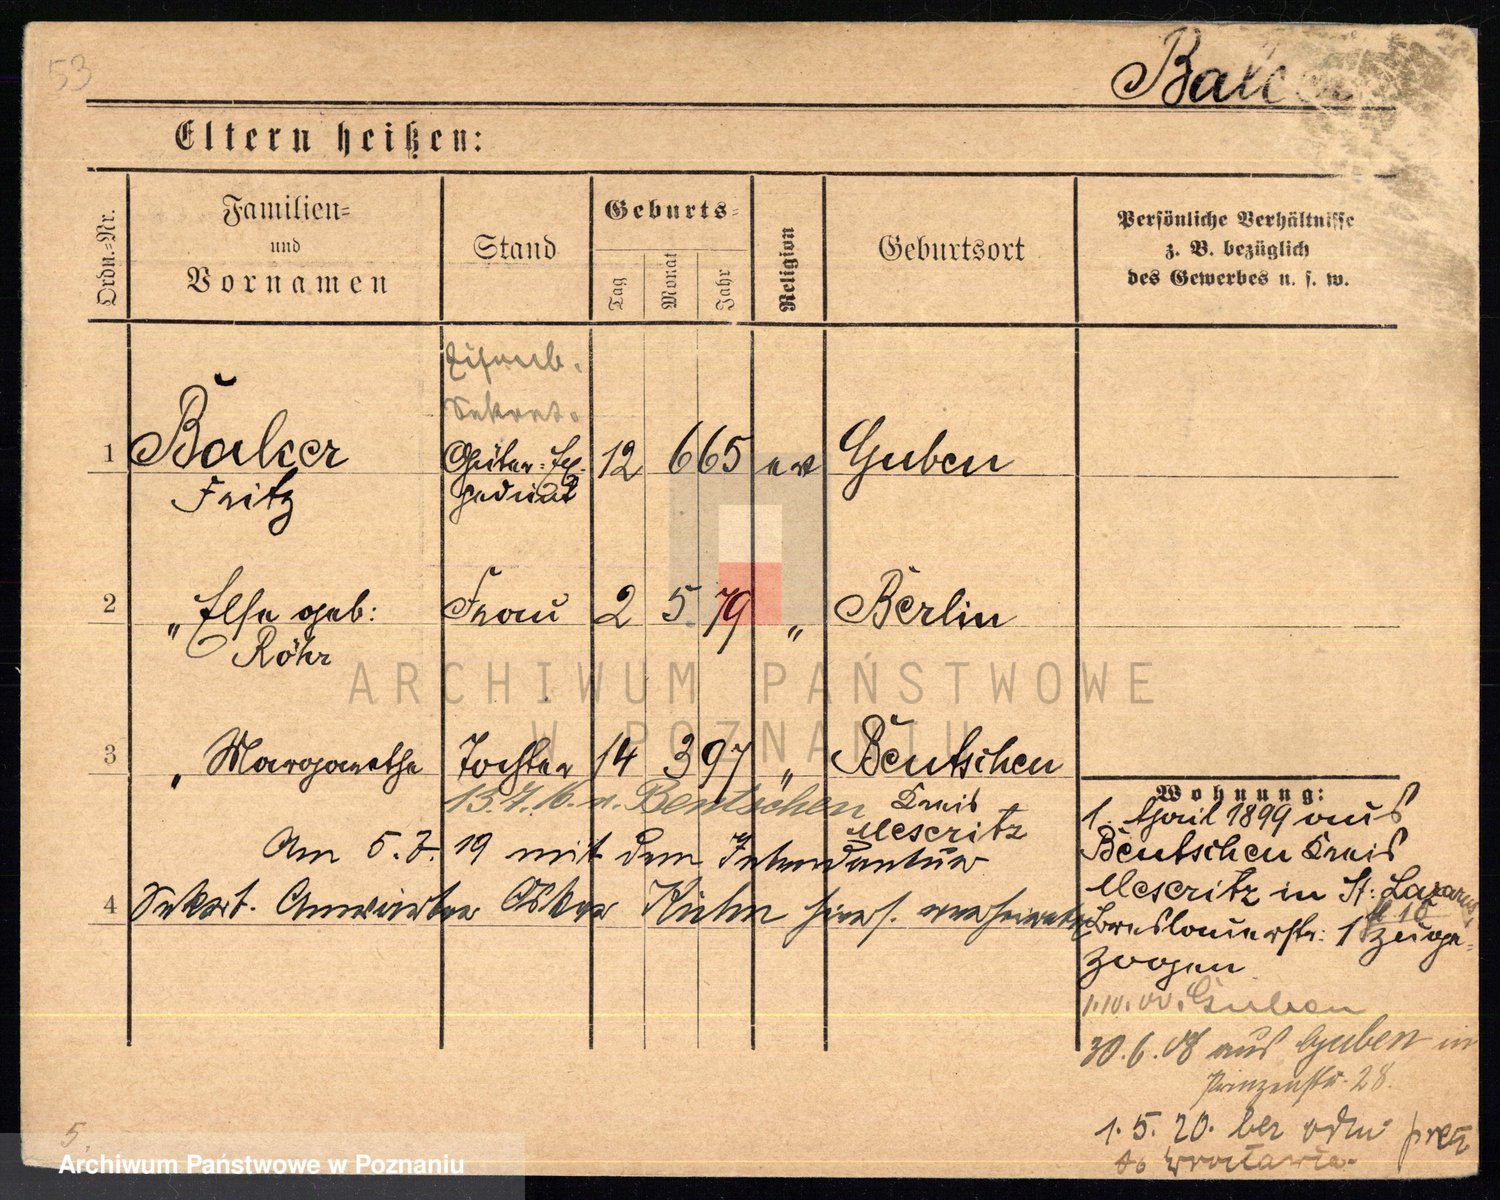 53
Eltern heißen:
Ordn.-Nr.
Familien-
und
Vornamen
Stand
Geburts-
Tag
Monat
Jahr
Religion
Geburtsort
Persönliche Verhältnisse
z. B. bezüglich
des Gewerbes u. s. w.
Eisenb.
Sekret.
1 Balcer Güter-Ex- 12 6 65 ev Guben
Fritz pedient
2 " Else geb: Frau 2 5. 79 " Berlin
Röhr
3 " Margarethe Tochter 14 3 97 " Bentschen
Kreis
Bentschen
Meseritz
Am 5. 7. 19 mit dem Intendantur
4 Sekret. Anwärter Oskar Kühn hiers. verheiratet
Wohnung:
1. April 1899 aus
Bentschen Kreis
Meseritz in St: Lazarus
Breslauerstr: 1 zuge-
zogen
1.10.00. Guben
30.6.08 aus Guben in
Prinzenstr. 28.
1. 5. 20. bez odm:
do Wrocławia.
5.
ARCHIWUM PAŃSTWOWE
W POZNANIU
Archiwum Państwowe w Poznaniu